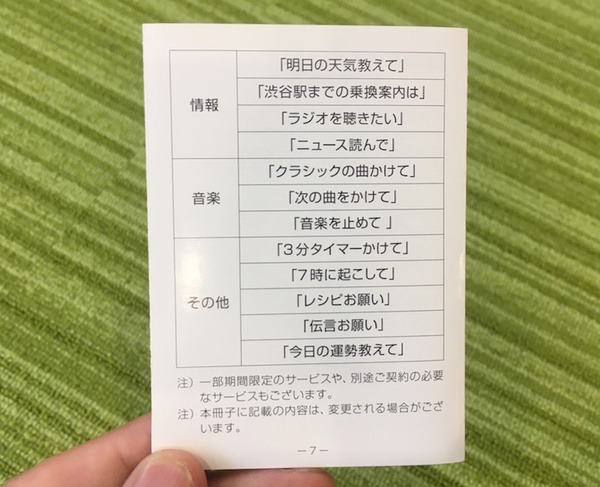 情報
「明日の天気教えて」
「渋谷駅までの乗換案内は」
「ラジオを聴きたい」
「ニュース読んで」
音楽
「クラシックの曲かけて」
「次の曲をかけて」
「音楽を止めて 」
その他
「3分タイマーかけて」
「7時に起こして」
「レシピお願い」
「伝言お願い」
「今日の運勢教えて」
注）一部期間限定のサービスや、別途ご契約の必要
なサービスもございます。
注）本冊子に記載の内容は、変更される場合がござ
います。
－7－